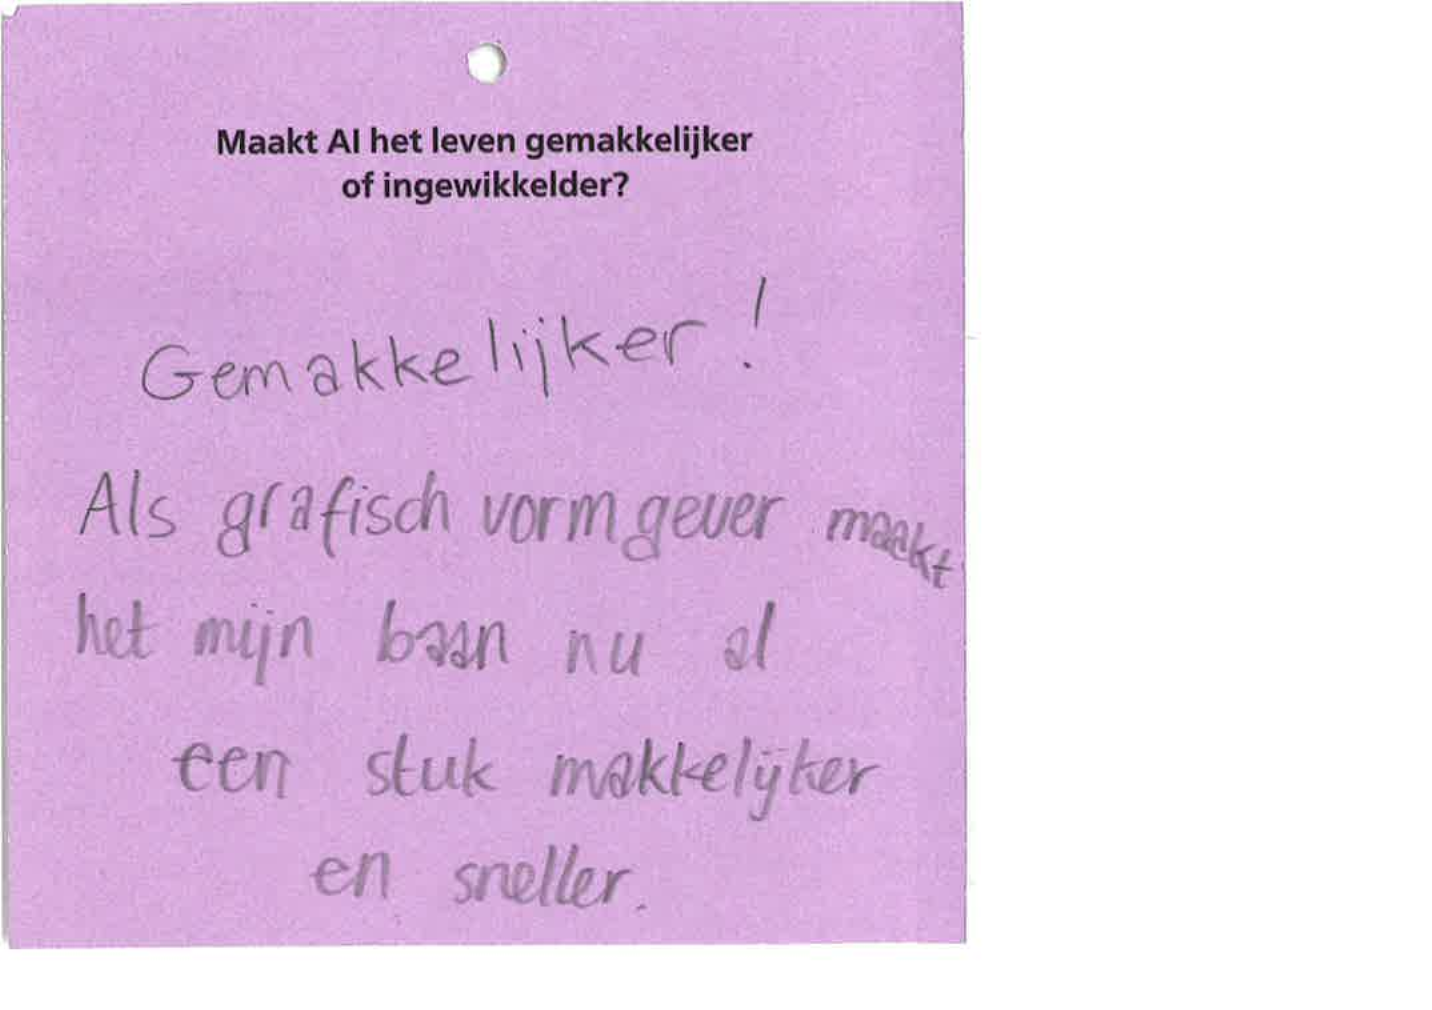 Maakt AI het leven gemakkelijker
of ingewikkelder?
Gemakkelijker!
Als grafisch vormgever maakt
het mijn baan nu al
een stuk makkelijker
en sneller.